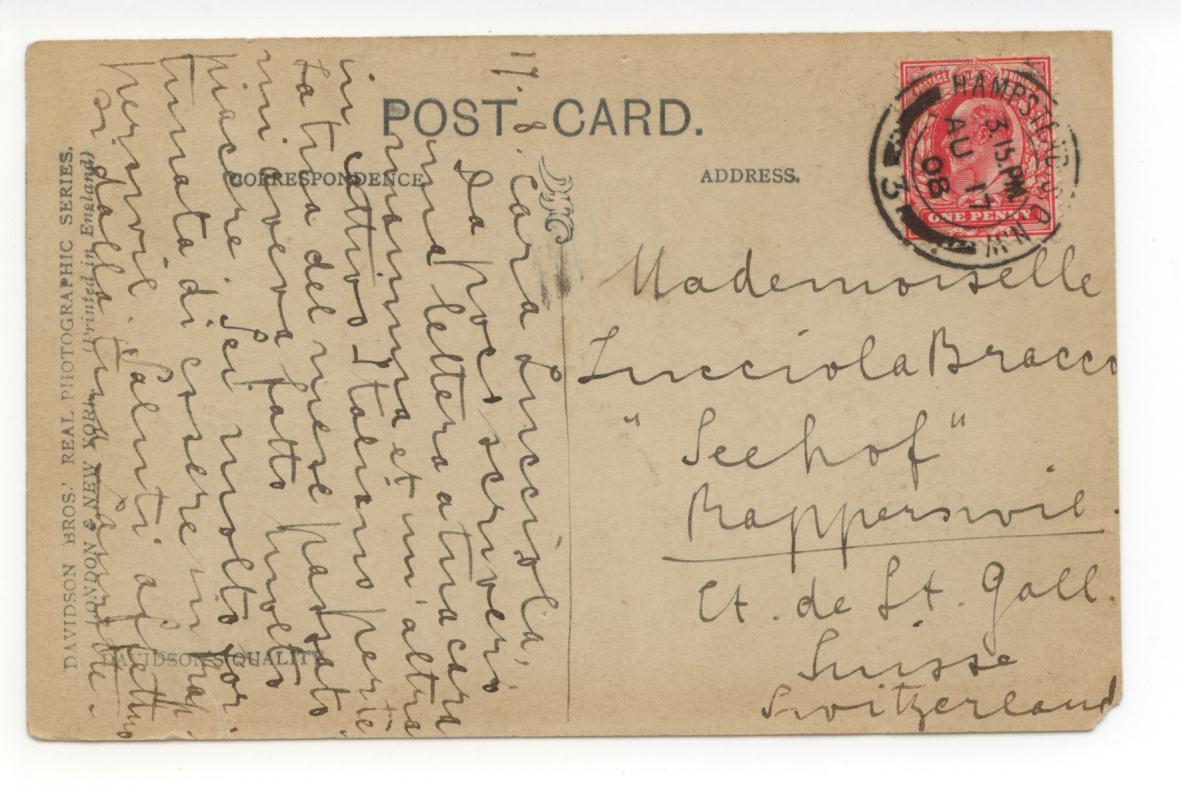 POST CARD.
CORRESPONDENCE
ADDRESS.
DAVIDSON BROS.' REAL PHOTOGRAPHIC SERIES.
LONDON & NEW YORK. (Printed in England)
DAVIDSON'S QUALITY
POSTAGE
ONE PENNY
HAMPSTEAD
N.W.
3.15.PM
AU 17
08
3
17. 8. Cara Lucciola,
Da poco scriverò
una lettera a tua cara
mamma et un'altra
in cattivo Italiano perte
La tua del mese passato
mi aveva fatto molto
piacere. Sei molto for.
tunata di essere in Rap
perswil. Saluti affettuo
si dalla tua
Mademoiselle
Lucciola Bracco
"Seehof"
Rapperswil.
Ct. de St. Gall.
Suisse
Switzerland